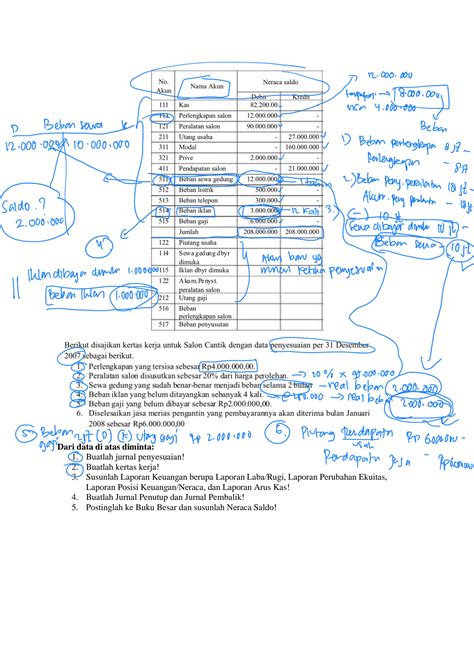 No. Akun Nama Akun Neraca saldo
Debit Kredit
111 Kas 82.200.00 -
112 Perlengkapan salon 12.000.000 -
121 Peralatan salon 90.000.000 -
211 Utang usaha - 27.000.000
311 Modal - 160.000.000
312 Prive 2.000.000 -
411 Pendapatan salon - 21.000.000
511 Beban sewa gedung 12.000.000 -
512 Beban listrik 500.000 -
513 Beban telepon 300.000 -
514 Beban iklan 3.000.000 -
515 Beban gaji 6.000.000 -
Jumlah 208.000.000 208.000.000
122 Piutang usaha
114 Sewa gedung dbyr dimuka
115 Iklan dbyr dimuka
122 Akum.Penyst. peralatan salon
212 Utang gaji
516 Beban perlengkapan
517 Beban penyusutan
12.000.000
8.000.000
4.000.000
Beban
1) Beban perlengkapan 8 jt
Perlengkapan - 8 jt
2) Beban peny. peralatan 18 jt
Akum. peny peralatan - 18 jt
Sewa dibayar dimuka 10 jt
Beban sewa - 10 jt
D Beban sewa K
12.000.000 10.000.000
Saldo ?
2.000.000
4
Iklan dibayar dimuka 1.000.000
Beban Iklan 1.000.000
1 tahun
12 kali
Akun baru yg muncul ketika penyesuaian
Berikut disajikan kertas kerja untuk Salon Cantik dengan data penyesuaian per 31 Desember
2007 sebagai berikut.
1. Perlengkapan yang tersisa sebesar Rp4.000.000,00.
2. Peralatan salon disusutkan sebesar 20% dari harga perolehan. → 20% x 90.000.000
3. Sewa gedung yang sudah benar-benar menjadi beban selama 2 bulan → real beban 2.000.000
4. Beban iklan yang belum ditayangkan sebanyak 4 kali. → real beban 2.000.000
5. Beban gaji yang belum dibayar sebesar Rp2.000.000,00.
6. Diselesaikan jasa merias pengantin yang pembayarannya akan diterima bulan Januari
2008 sebesar Rp6.000.000,00
5. Beban gaji 2 jt (D) (K) utang gaji Rp 2.000.000
6. Piutang Pendapatan
Pendapatan Jasa
Dari data di atas diminta:
1. Buatlah jurnal penyesuaian!
2. Buatlah kertas kerja!
3. Susunlah Laporan Keuangan berupa Laporan Laba/Rugi, Laporan Perubahan Ekuitas,
Laporan Posisi Keuangan/Neraca, dan Laporan Arus Kas!
4. Buatlah Jurnal Penutup dan Jurnal Pembalik!
5. Postinglah ke Buku Besar dan susunlah Neraca Saldo!